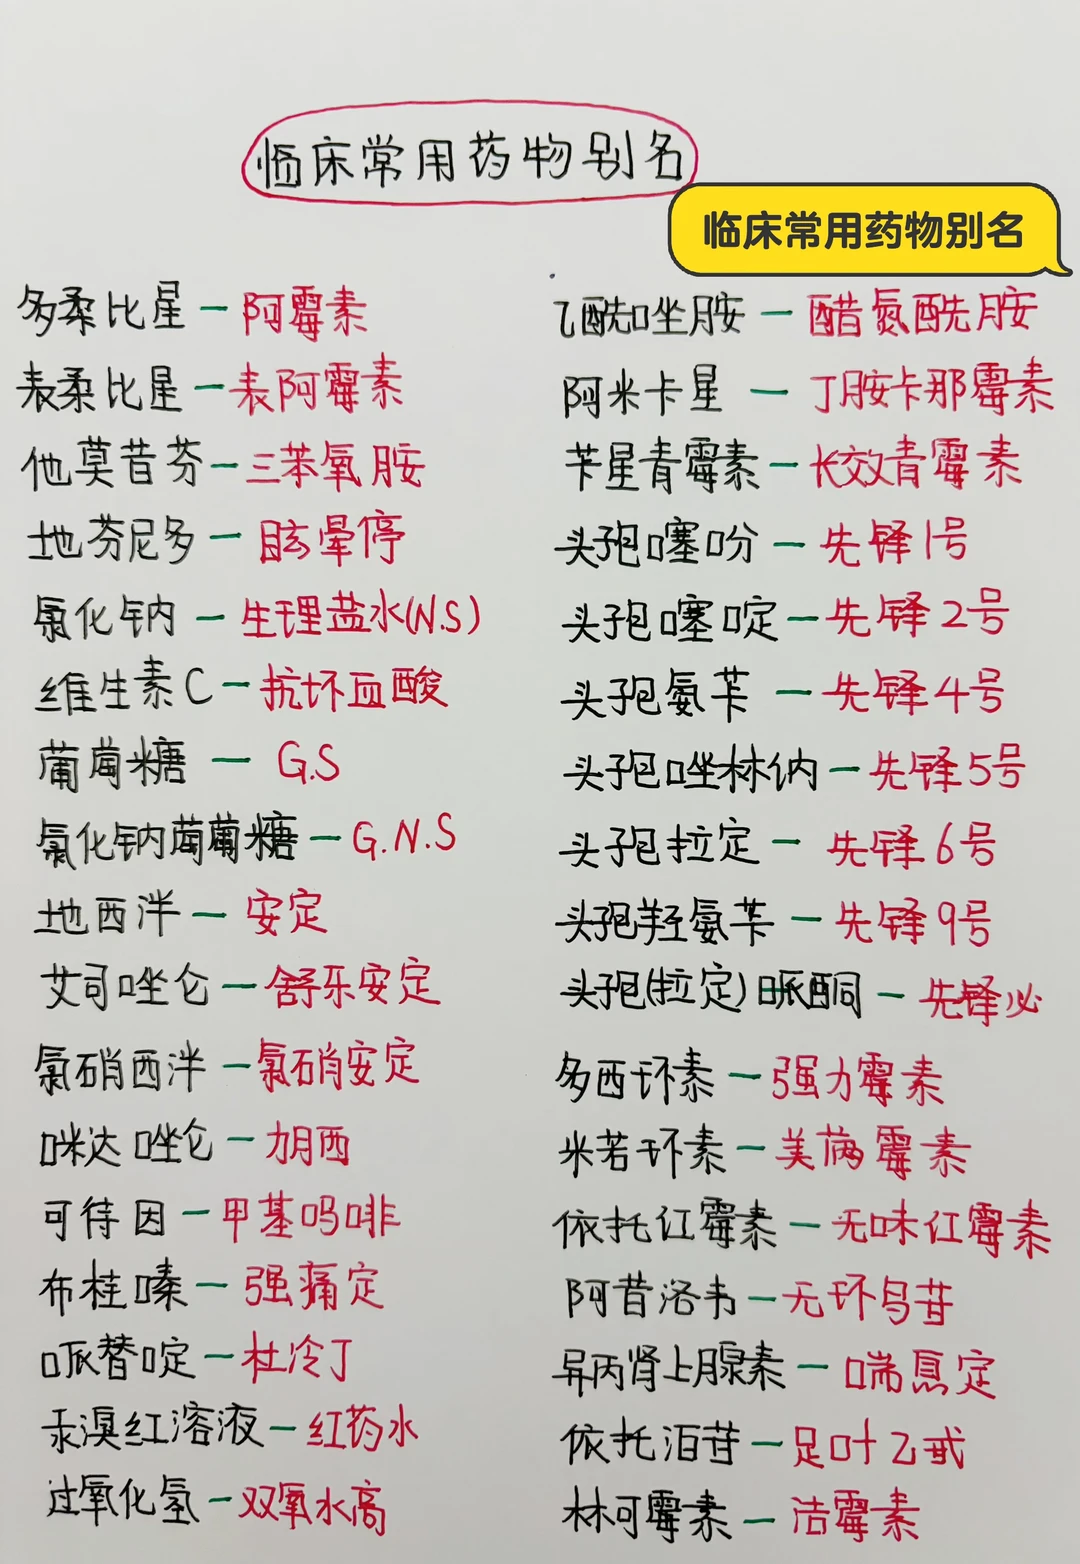 临床常用药物别名
临床常用药物别名
多柔比星 — 阿霉素
表柔比星 — 表阿霉素
他莫昔芬 — 三苯氧胺
地芬尼多 — 眩晕停
氯化钠 — 生理盐水(N.S)
维生素C — 抗坏血酸
葡萄糖 — G.S
氯化钠葡萄糖 — G.N.S
地西泮 — 安定
艾司唑仑 — 舒乐安定
氯硝西泮 — 氯硝安定
咪达唑仑 — 力月西
可待因 — 甲基吗啡
布桂嗪 — 强痛定
哌替啶 — 杜冷丁
汞溴红溶液 — 红药水
过氧化氢 — 双氧水高
乙酰唑胺 — 醋氮酰胺
阿米卡星 — 丁胺卡那霉素
苄星青霉素 — 长效青霉素
头孢噻吩 — 先锋1号
头孢噻啶 — 先锋2号
头孢氨苄 — 先锋4号
头孢唑林钠 — 先锋5号
头孢拉定 — 先锋6号
头孢羟氨苄 — 先锋9号
头孢(拉定)哌酮 — 先锋必
多西环素 — 强力霉素
米若环素 — 美满霉素
依托红霉素 — 无味红霉素
阿昔洛韦 — 无环鸟苷
异丙肾上腺素 — 喘息定
依托泊苷 — 足叶乙甙
林可霉素 — 洁霉素